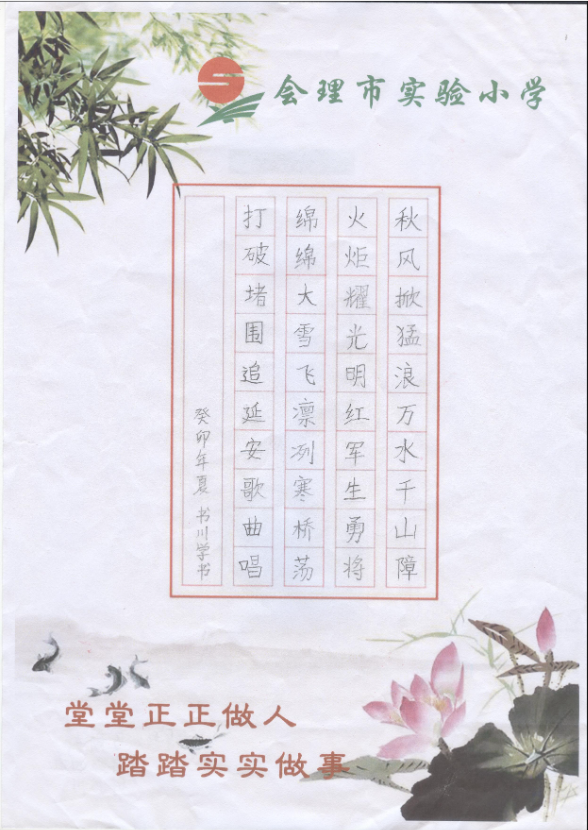 会理市实验小学
秋风掀猛浪万水千山障
火炬耀光明红军生勇将
绵绵大雪飞凛冽寒桥荡
打破堵围追延安歌曲唱
癸卯年夏 书川学书
堂堂正正做人
踏踏实实做事